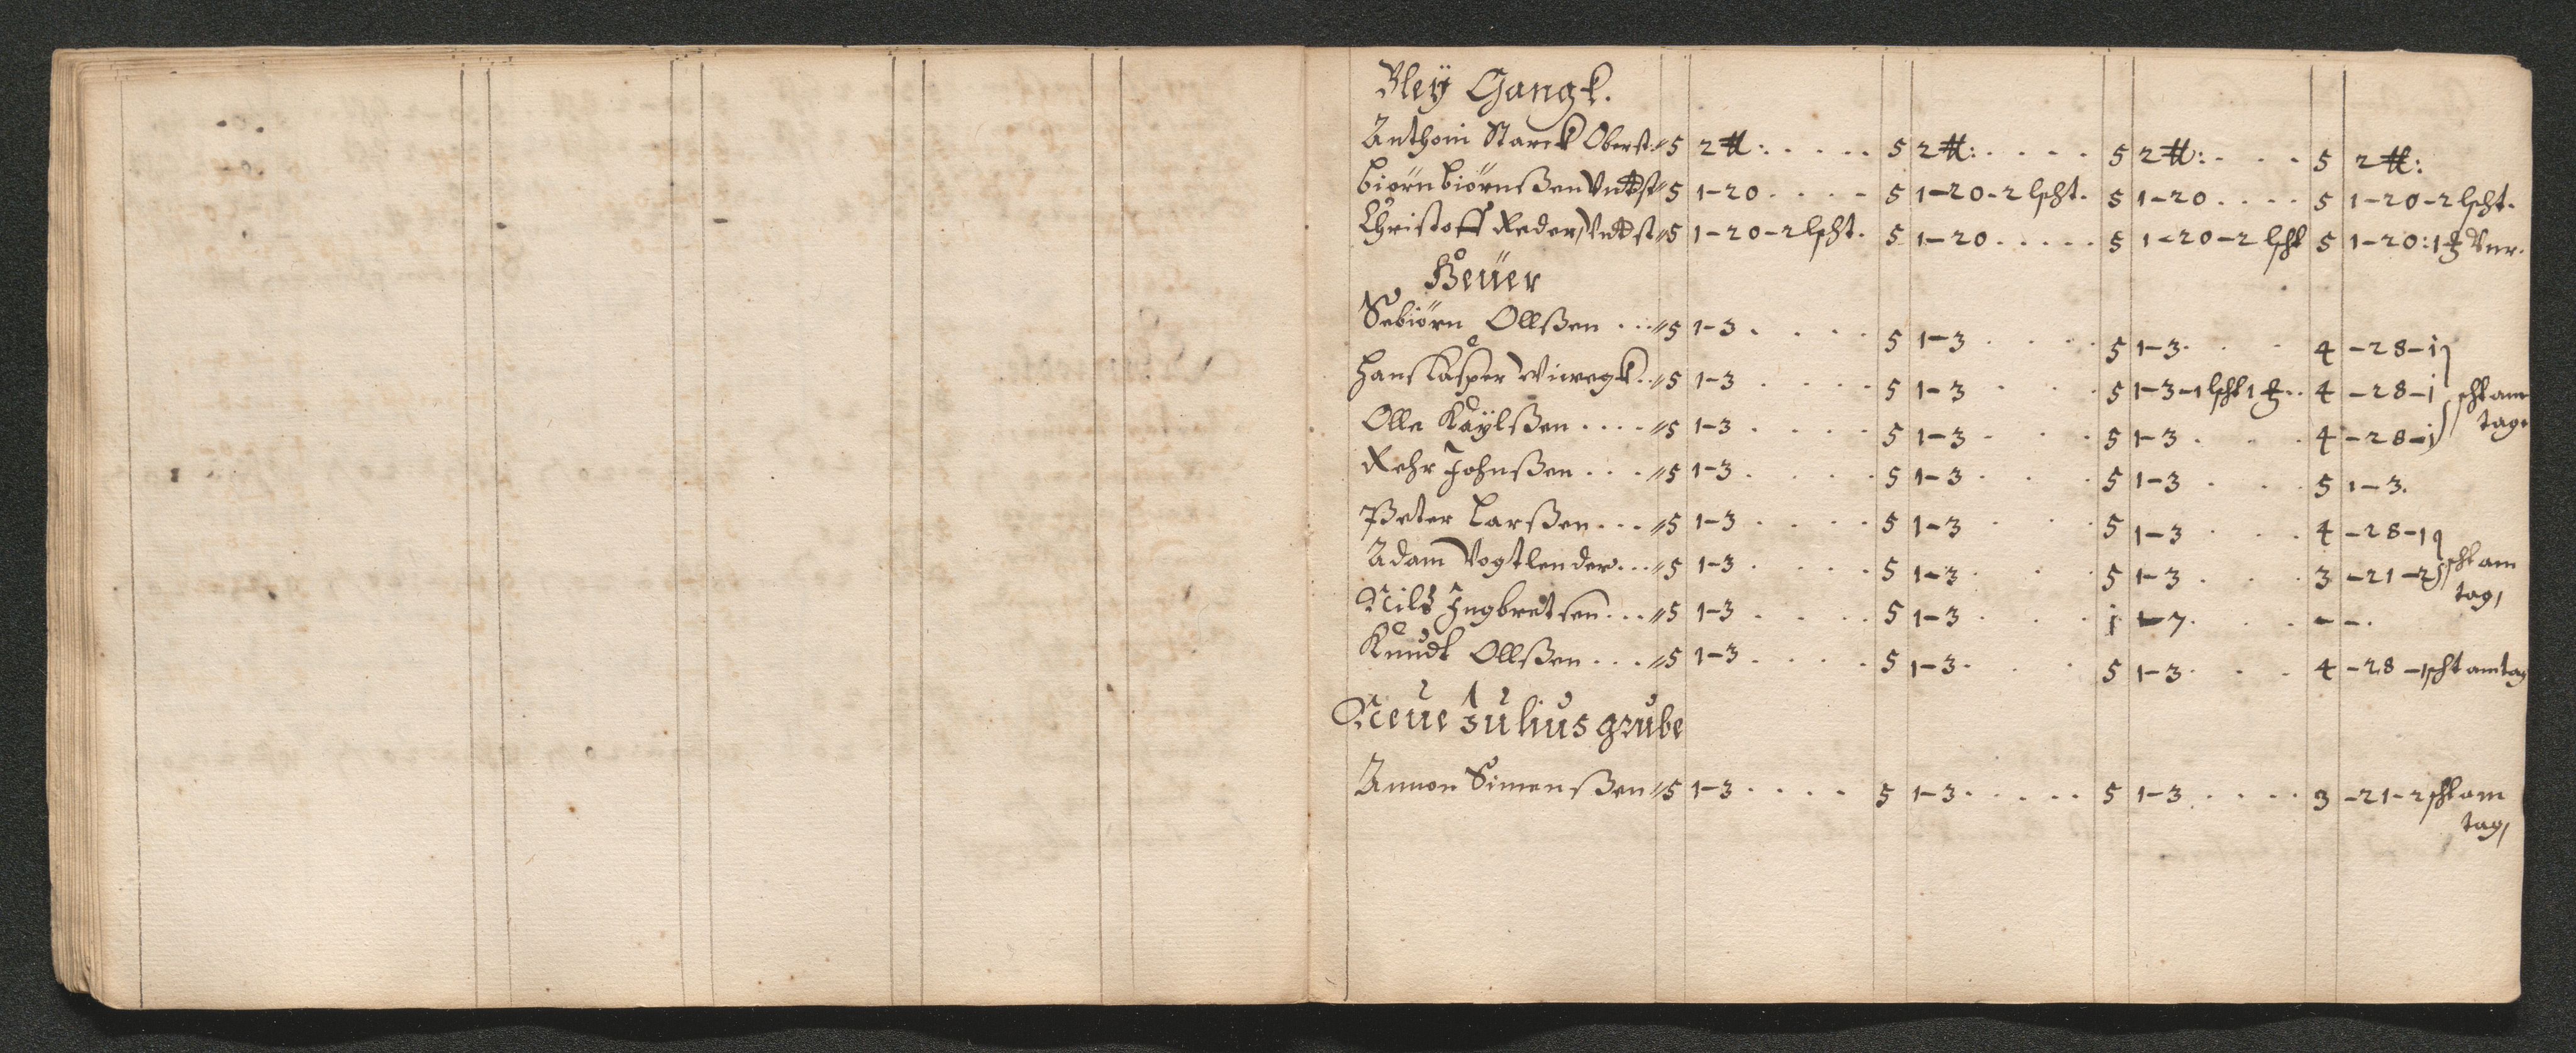 Bleÿ Gangk.
Anthoni Starck Oberst. 〃 5 2 tt: . . . . . 5 2 tt: . . . . 5 2 tt: . . . 5 2 tt:
biörn biörnßen Vndst 〃 5 1-20 . . . . 5 1-20-2 lscht. 5 1-20 . . . . 5 1-20-2 lscht.
Christoff Reder, Vndst 〃 5 1-20-2 lscht. 5 1-20 . . . . . 5 1-20-2 lscht 5 1-20:
Heüer
Sebiörn Ollßen . . . 〃 5 1-3 . . . . 5 1-3 . . . . 5 1-3 . . . 4 -28-i
Hans Casper Viwegk . . 〃 5 1-3 . . . . 5 1-3 . . . 5 1-3-1 lscht 1 . . 4 -28-i scht am
Olle Kaÿlßen . . . . 〃 5 1-3 . . . . 5 1-3 . . . 5 1-3 . . . 4 -28-i tag.
Rehr Johnßen . . . . 〃 5 1-3 . . . . 5 1-3 . . . 5 1-3 . . . 5 1-3.
Peter Larßen . . . 〃 5 1-3 . . . . 5 1-3 . . . 5 1-3 . . . 4 -28-1
Adam Vogtlender . . . 〃 5 1-3 . . . . 5 1-3 . . . 5 1-3 . . . 3 -21-2 scht am
Nilß Ingbretsen . . . 〃 5 1-3 . . . . 5 1-3 . . . i -7 . . . - - . tag,
Knudt Ollßen . . . 〃 5 1-3 . . . . 5 1-3 . . . 5 1-3 . . . 4 -28-1 scht am tag
Neue Julius grube
Annon Simenßen 〃 5 1-3 . . . . 5 1-3 . . . . . 5 1-3 . . . . 3 -21-2 scht am
tag,